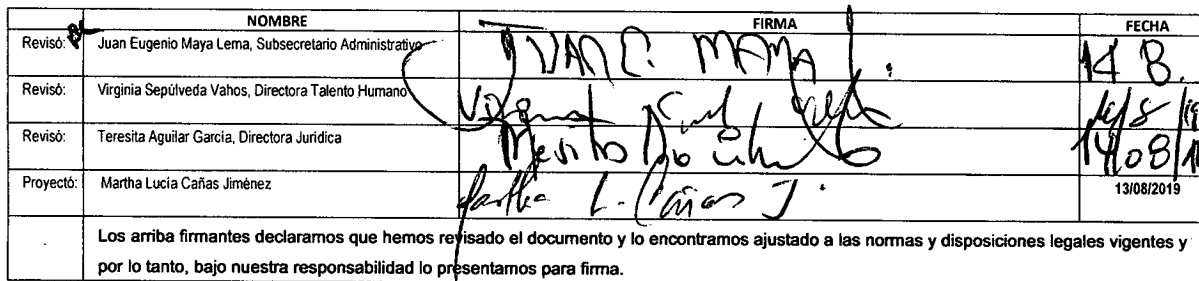 NOMBRE FIRMA FECHA
Revisó: Juan Eugenio Maya Lema, Subsecretario Administrativo JUAN E. MAYA L. 14 8.
Revisó: Virginia Sepúlveda Vahos, Directora Talento Humano Virginia
Revisó: Teresita Aguilar García, Directora Jurídica 14/08/
Proyectó: Martha Lucía Cañas Jiménez Martha L. Cañas J. 13/08/2019
Los arriba firmantes declaramos que hemos revisado el documento y lo encontramos ajustado a las normas y disposiciones legales vigentes y
por lo tanto, bajo nuestra responsabilidad lo presentamos para firma.